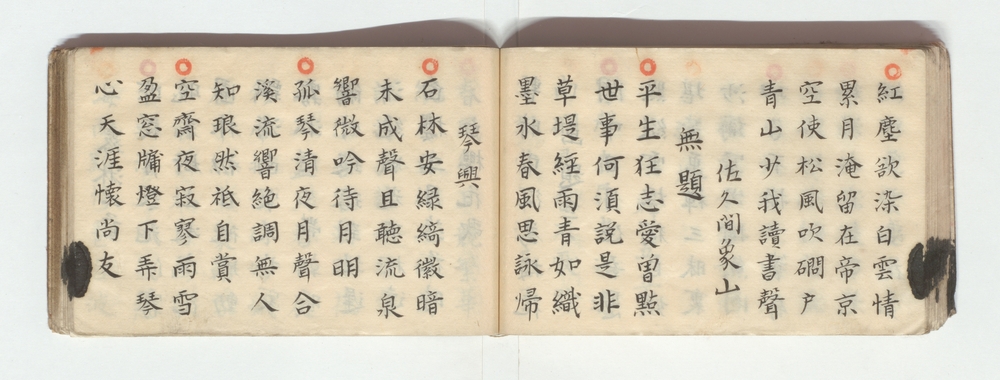 紅塵欲染白雲情
累月淹留在帝京
空使松風吹磵戶
青山少我讀書聲
佐久間象山
無題
平生狂志愛曽點
世事何須說是非
草堤經雨青如織
墨水春風思詠帰
琴興
石林安綠綺徽暗
未成聲且聽流泉
響微吟待月明
孤琴清夜月聲合
溪流響絕調無人
知琅然祗自賞
空齋夜寂寥雨雪
盈窓牖燈下弄琴
心天涯懷尚友